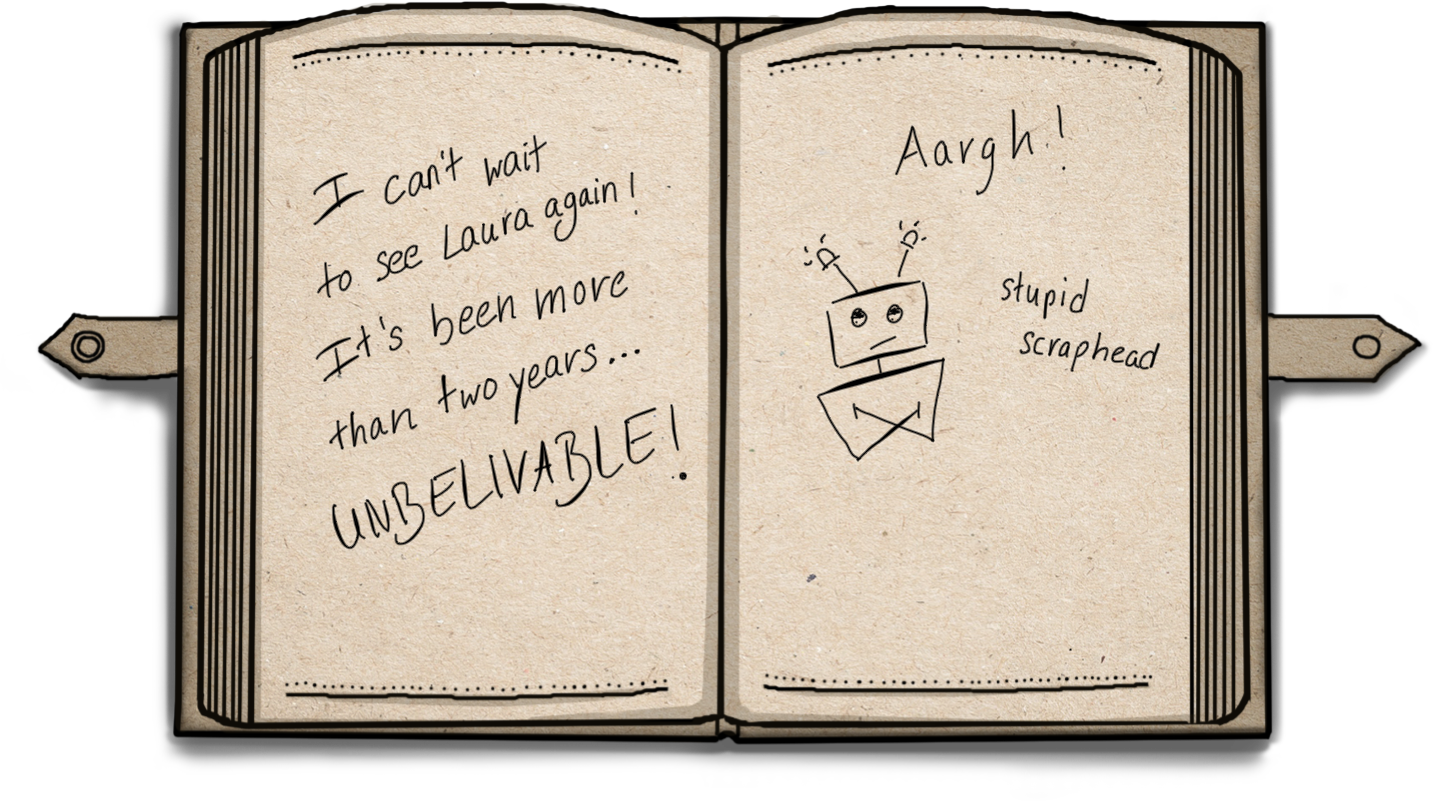 I can't wait
to see Laura again!
It's been more
than two years...
UNBELIVABLE!
Aargh!
stupid
scraphead